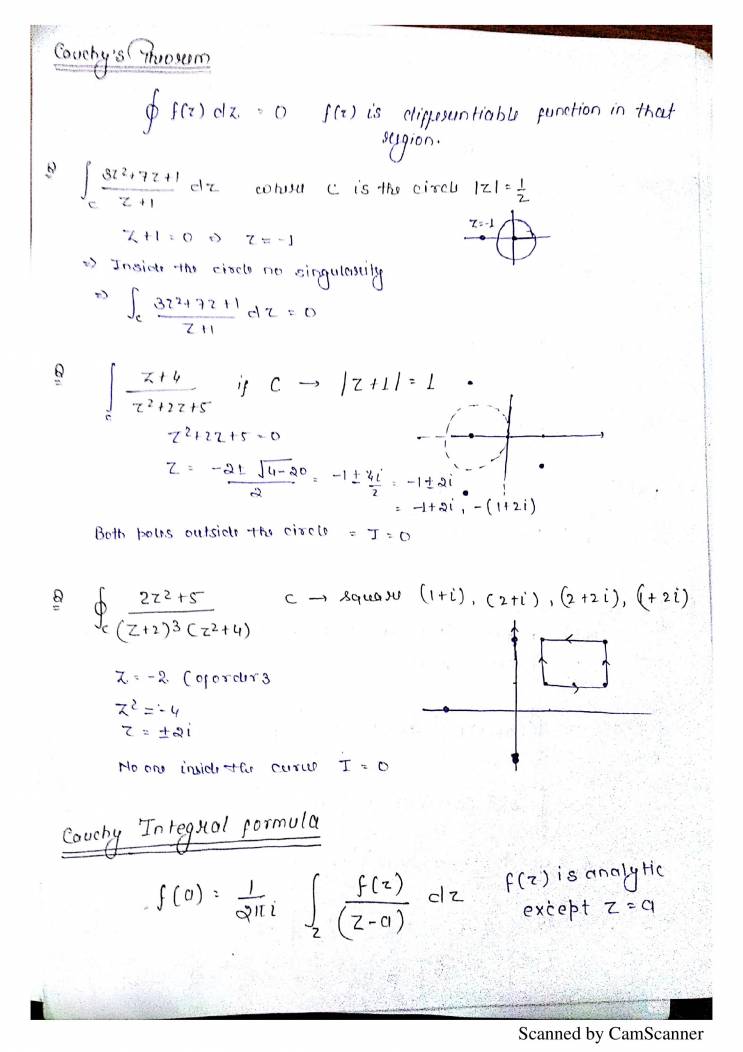 Cauchy's Theorem
∮ f(z) dz = 0 f(z) is differentiable function in that
region.
Q ∫_C (3z²+7z+1)/(z+1) dz where C is the circle |z| = 1/2
z+1 = 0 ⇒ z = -1
z=-1
⇒ Inside the circle no singularity
⇒ ∫_C (3z²+7z+1)/(z+1) dz = 0
Q ∫_C (z+4)/(z²+2z+5) if C → |z+1| = 1
z²+2z+5 = 0
z = (-2±√(4-20))/2 = -1 ± 4i/2 = -1±2i
= -1+2i, -(1+2i)
Both poles outside the circle = I = 0
Q ∮_C (2z²+5)/((z+2)³(z²+4)) C → square (1+i), (2+i), (2+2i), (1+2i)
z = -2 (of order 3
z² = -4
z = ±2i
No one inside the curve I = 0
Cauchy Integral formula
f(a) = 1/(2πi) ∫_z f(z)/(z-a) dz f(z) is analytic
except z = a
Scanned by CamScanner